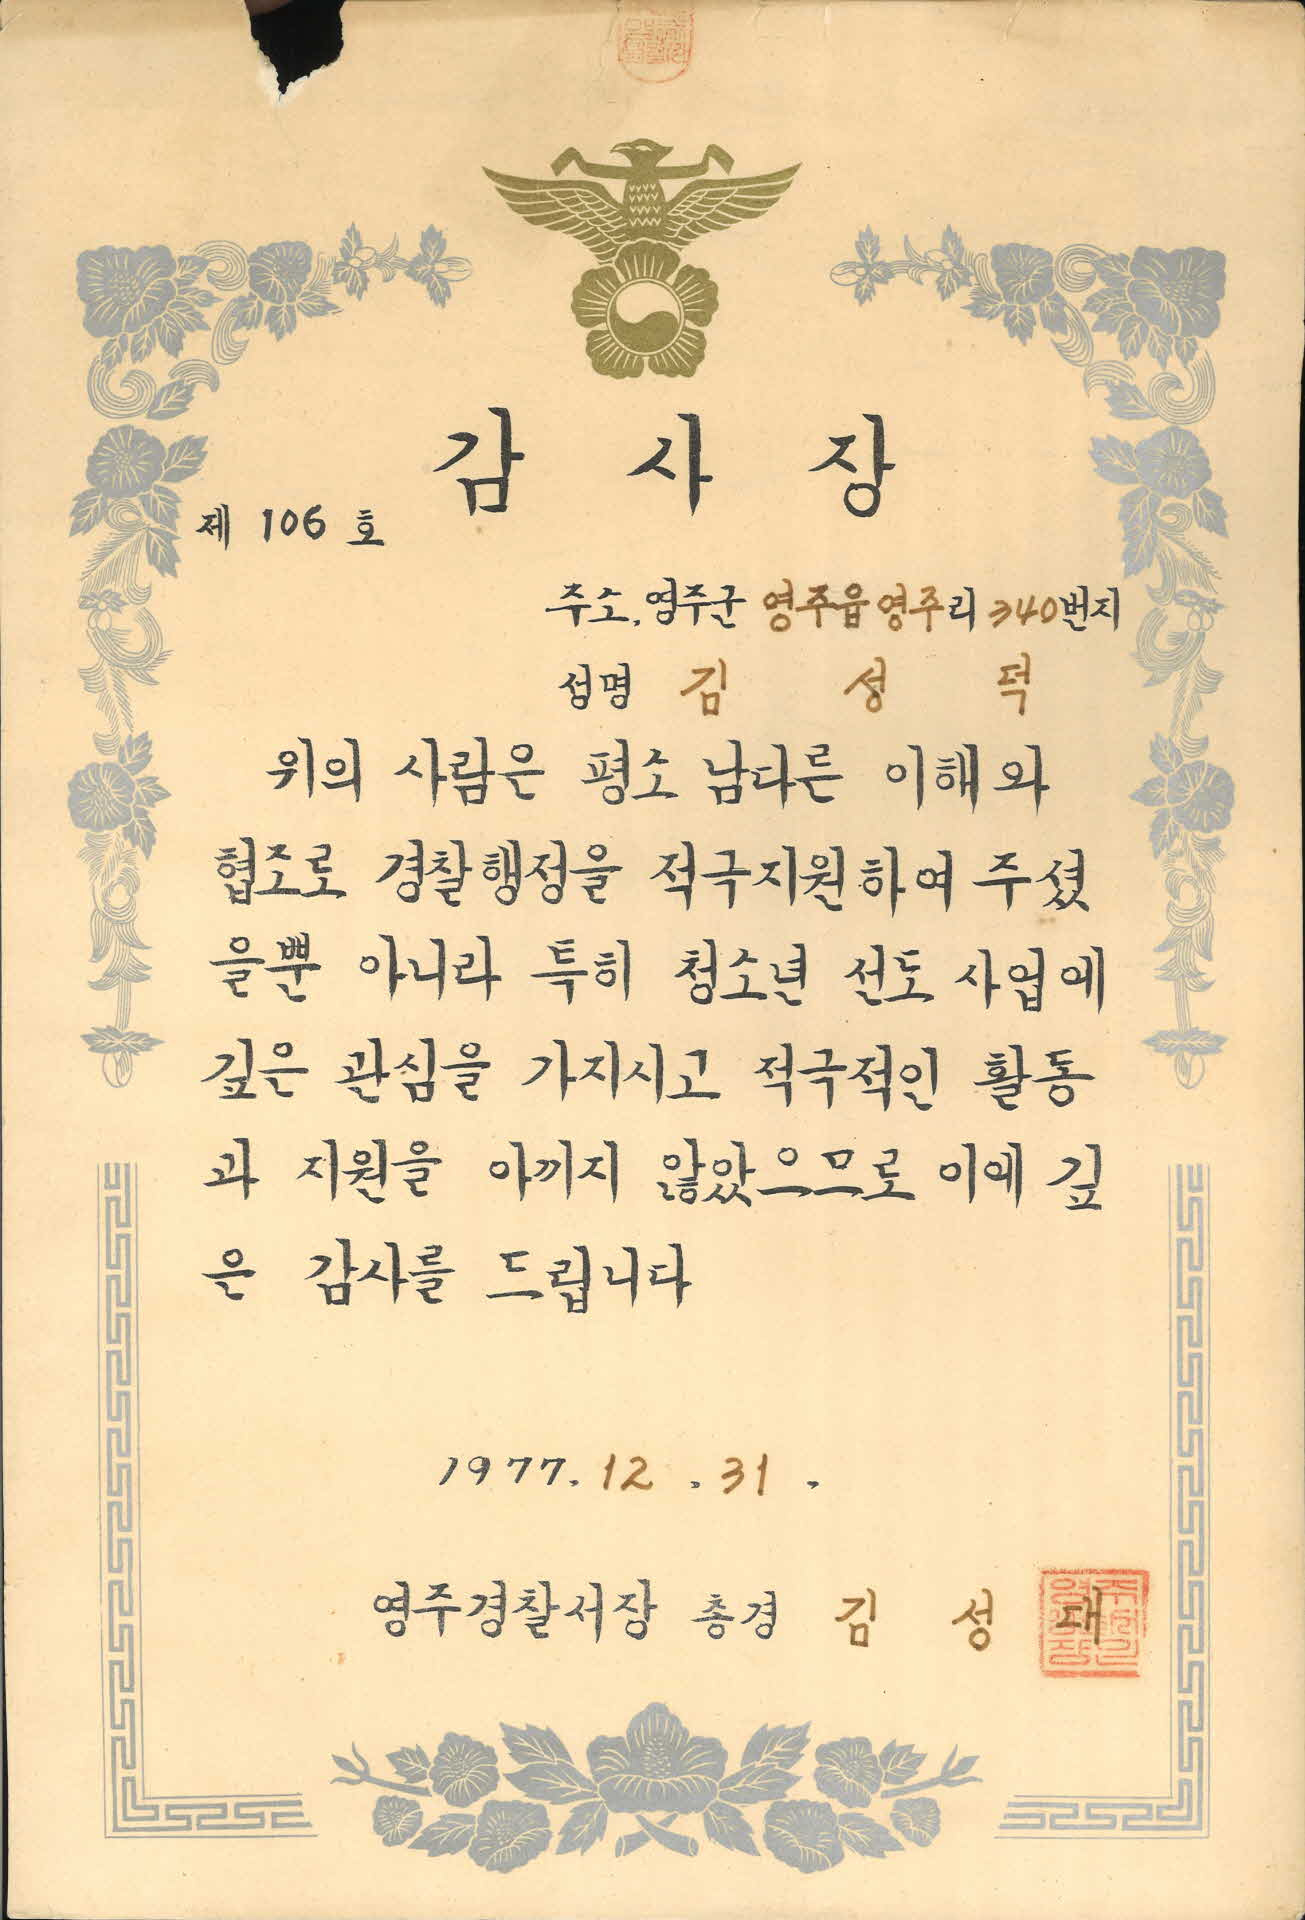 감 사 장
제 106 호
주소, 영주군 영주읍 영주리 340번지
성명 김 성 덕
위의 사람은 평소 남다른 이해와
협조로 경찰행정을 적극지원하여 주셨
을뿐 아니라 특히 청소년 선도 사업에
깊은 관심을 가지시고 적극적인 활동
과 지원을 아끼지 않았으므로 이에 깊
은 감사를 드립니다
1977. 12 . 31 .
영주경찰서장 총경 김 성 대